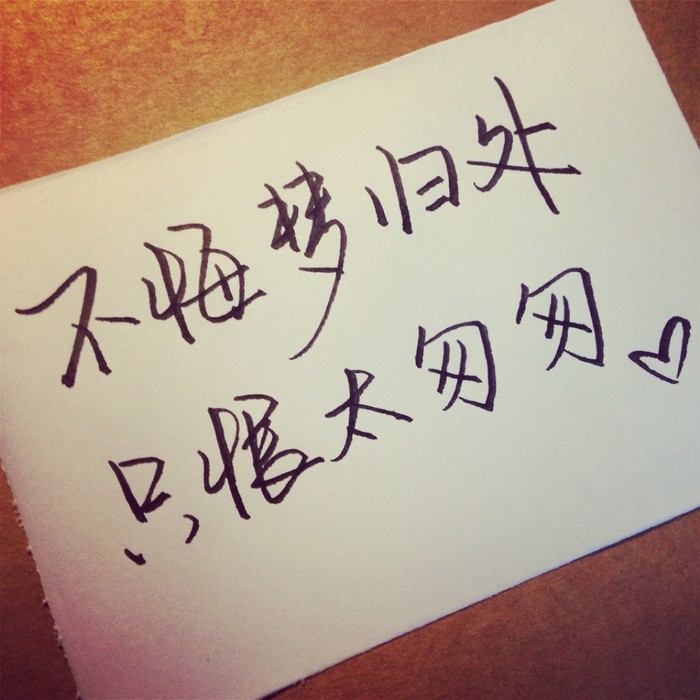 不悔梦归处
只恨太匆匆♡